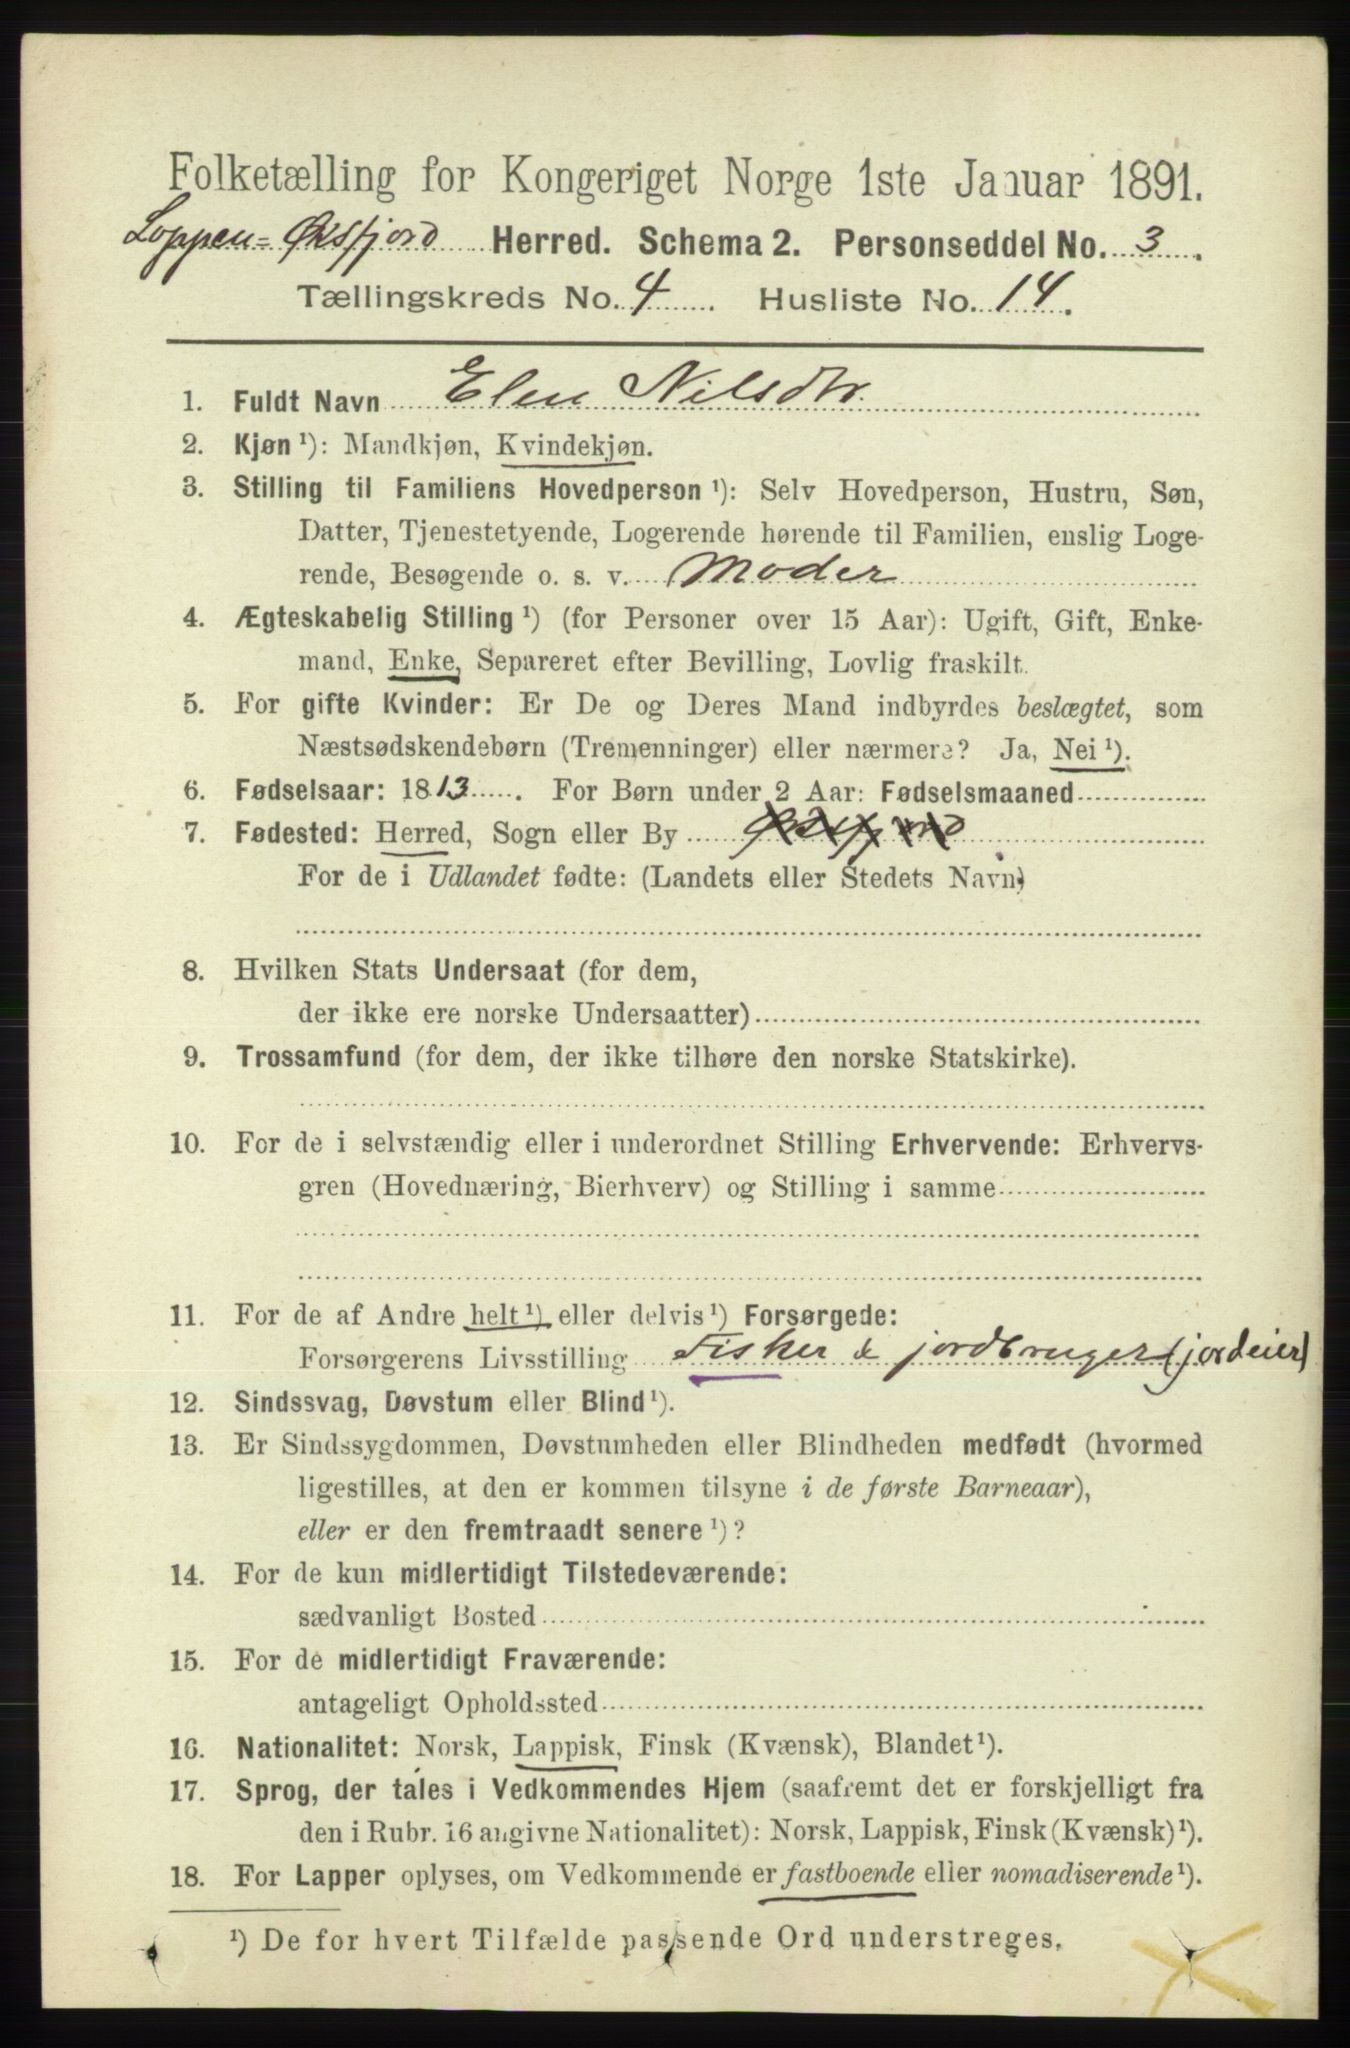 Folketælling for Kongeriget Norge 1ste Januar 1891.
Loppen=Øksfjord Herred. Schema 2. Personseddel No. 3.
Tællingskreds No. 4. Husliste No. 14.
1. Fuldt Navn Elen Nilsdtr.
2. Kjøn ¹): Mandkjøn, Kvindekjøn.
3. Stilling til Familiens Hovedperson ¹): Selv Hovedperson, Hustru, Søn,
Datter, Tjenestetyende, Logerende hørende til Familien, enslig Loge-
rende, Besøgende o. s. v. Moder
4. Ægteskabelig Stilling ¹) (for Personer over 15 Aar): Ugift, Gift, Enke-
mand, Enke, Separeret efter Bevilling, Lovlig fraskilt.
5. For gifte Kvinder: Er De og Deres Mand indbyrdes beslægtet, som
Næstsødskendebørn (Tremenninger) eller nærmere? Ja, Nei ¹).
6. Fødselsaar: 1813. For Børn under 2 Aar: Fødselsmaaned
7. Fødested: Herred, Sogn eller By Øksfjord
For de i Udlandet fødte: (Landets eller Stedets Navn)
8. Hvilken Stats Undersaat (for dem,
der ikke ere norske Undersaatter)
9. Trossamfund (for dem, der ikke tilhøre den norske Statskirke).
10. For de i selvstændig eller i underordnet Stilling Erhvervende: Erhvervs-
gren (Hovednæring, Bierhverv) og Stilling i samme
11. For de af Andre helt ¹) eller delvis ¹) Forsørgede:
Forsørgerens Livsstilling Fisker & jordbruger (jordeier)
12. Sindssvag, Døvstum eller Blind ¹).
13. Er Sindssygdommen, Døvstumheden eller Blindheden medfødt (hvormed
ligestilles, at den er kommen tilsyne i de første Barneaar),
eller er den fremtraadt senere ¹)?
14. For de kun midlertidigt Tilstedeværende:
sædvanligt Bosted
15. For de midlertidigt Fraværende:
antageligt Opholdssted
16. Nationalitet: Norsk, Lappisk, Finsk (Kvænsk), Blandet ¹).
17. Sprog, der tales i Vedkommendes Hjem (saafremt det er forskjelligt fra
den i Rubr. 16 angivne Nationalitet): Norsk, Lappisk, Finsk (Kvænsk) ¹).
18. For Lapper oplyses, om Vedkommende er fastboende eller nomadiserende ¹).
¹) De for hvert Tilfælde passende Ord understreges.